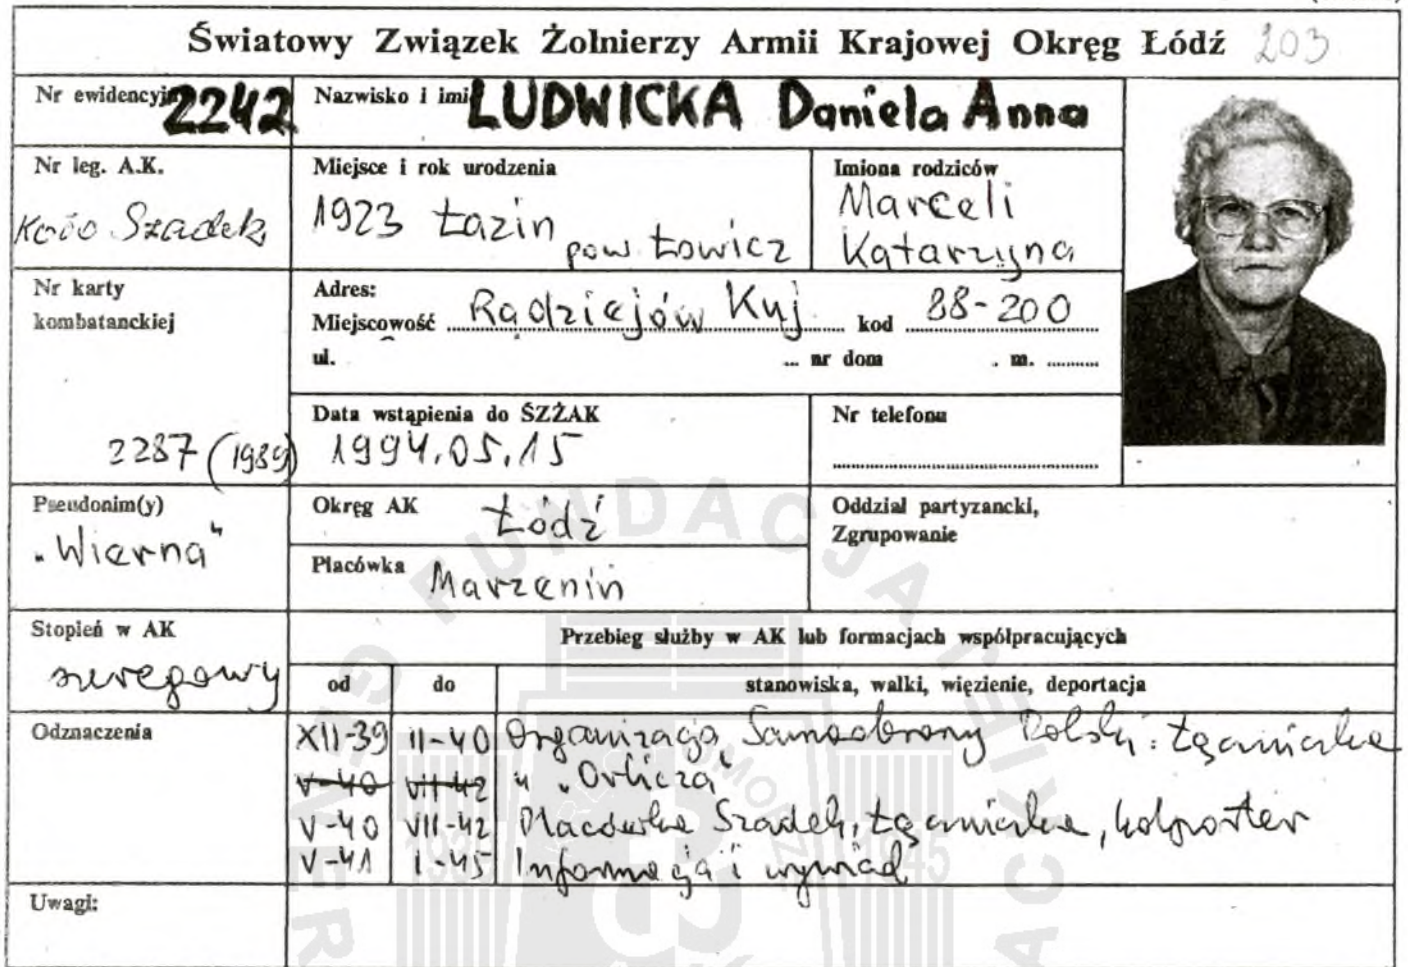 Światowy Związek Żołnierzy Armii Krajowej Okręg Łódź 203
Nr ewidencyjn 2242
Nazwisko i imi LUDWICKA Daniela Anna
Nr leg. A.K.
Koło Szadek
Miejsce i rok urodzenia
1923 Łazin
pow Łowicz
Imiona rodziców
Marceli
Katarzyna
Nr karty
kombatanckiej
2287 (1989)
Adres:
Miejscowość Radziejów Kuj. kod 88-200
ul. nr dom . m.
Data wstąpienia do ŚZŻAK
1994.05.15
Nr telefonu
Pseudonim(y)
"Wierna"
Okręg AK Łódź
Placówka Marzenin
Oddział partyzancki,
Zgrupowanie
Stopień w AK
szeregowy
Przebieg służby w AK lub formacjach współpracujących
od do stanowiska, walki, więzienie, deportacja
Odznaczenia
XII-39 II-40 Organizacja Samoobrony Polski: łączniczka
V-40 VII-42 u "Orlicza"
V-40 VII-42 Placówka Szadek, łączniczka, kolporter
V-41 I-45 Informacja i wywiad
Uwagi:
FUNDACJA
1939 1945
POMORZ